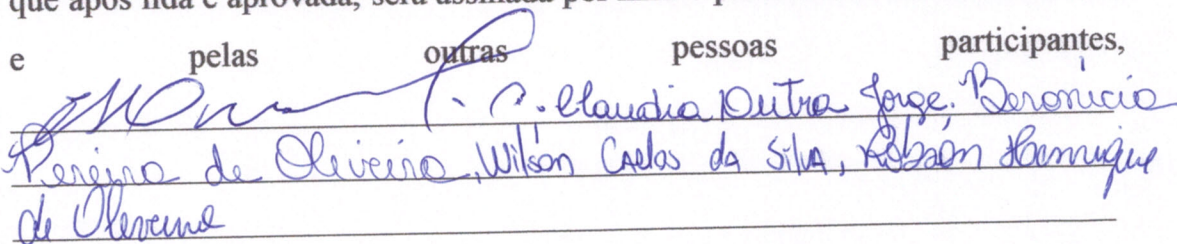 que após lida e aprovada, será assinada por
e pelas outras pessoas participantes,
C. Claudia Dutra Jorge. Beronicio
Pereira de Oliveira, Wilson Carlos da Silva, Robson Henrique
de Oliveira